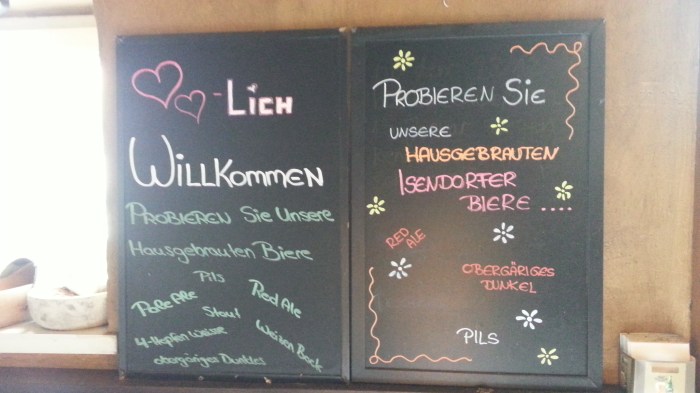 -LicH
WillKommen
Probieren Sie Unsere
Hausgebrauten Biere
Pils
Pale Ale
Red Ale
Stout
4-Hopfen Weisse
Weizen Bock
obergäriges Dunkles
Probieren Sie
unsere
Hausgebrauten
Isendorfer
Biere ....
Red
Ale
Obergäriges
Dunkel
Pils